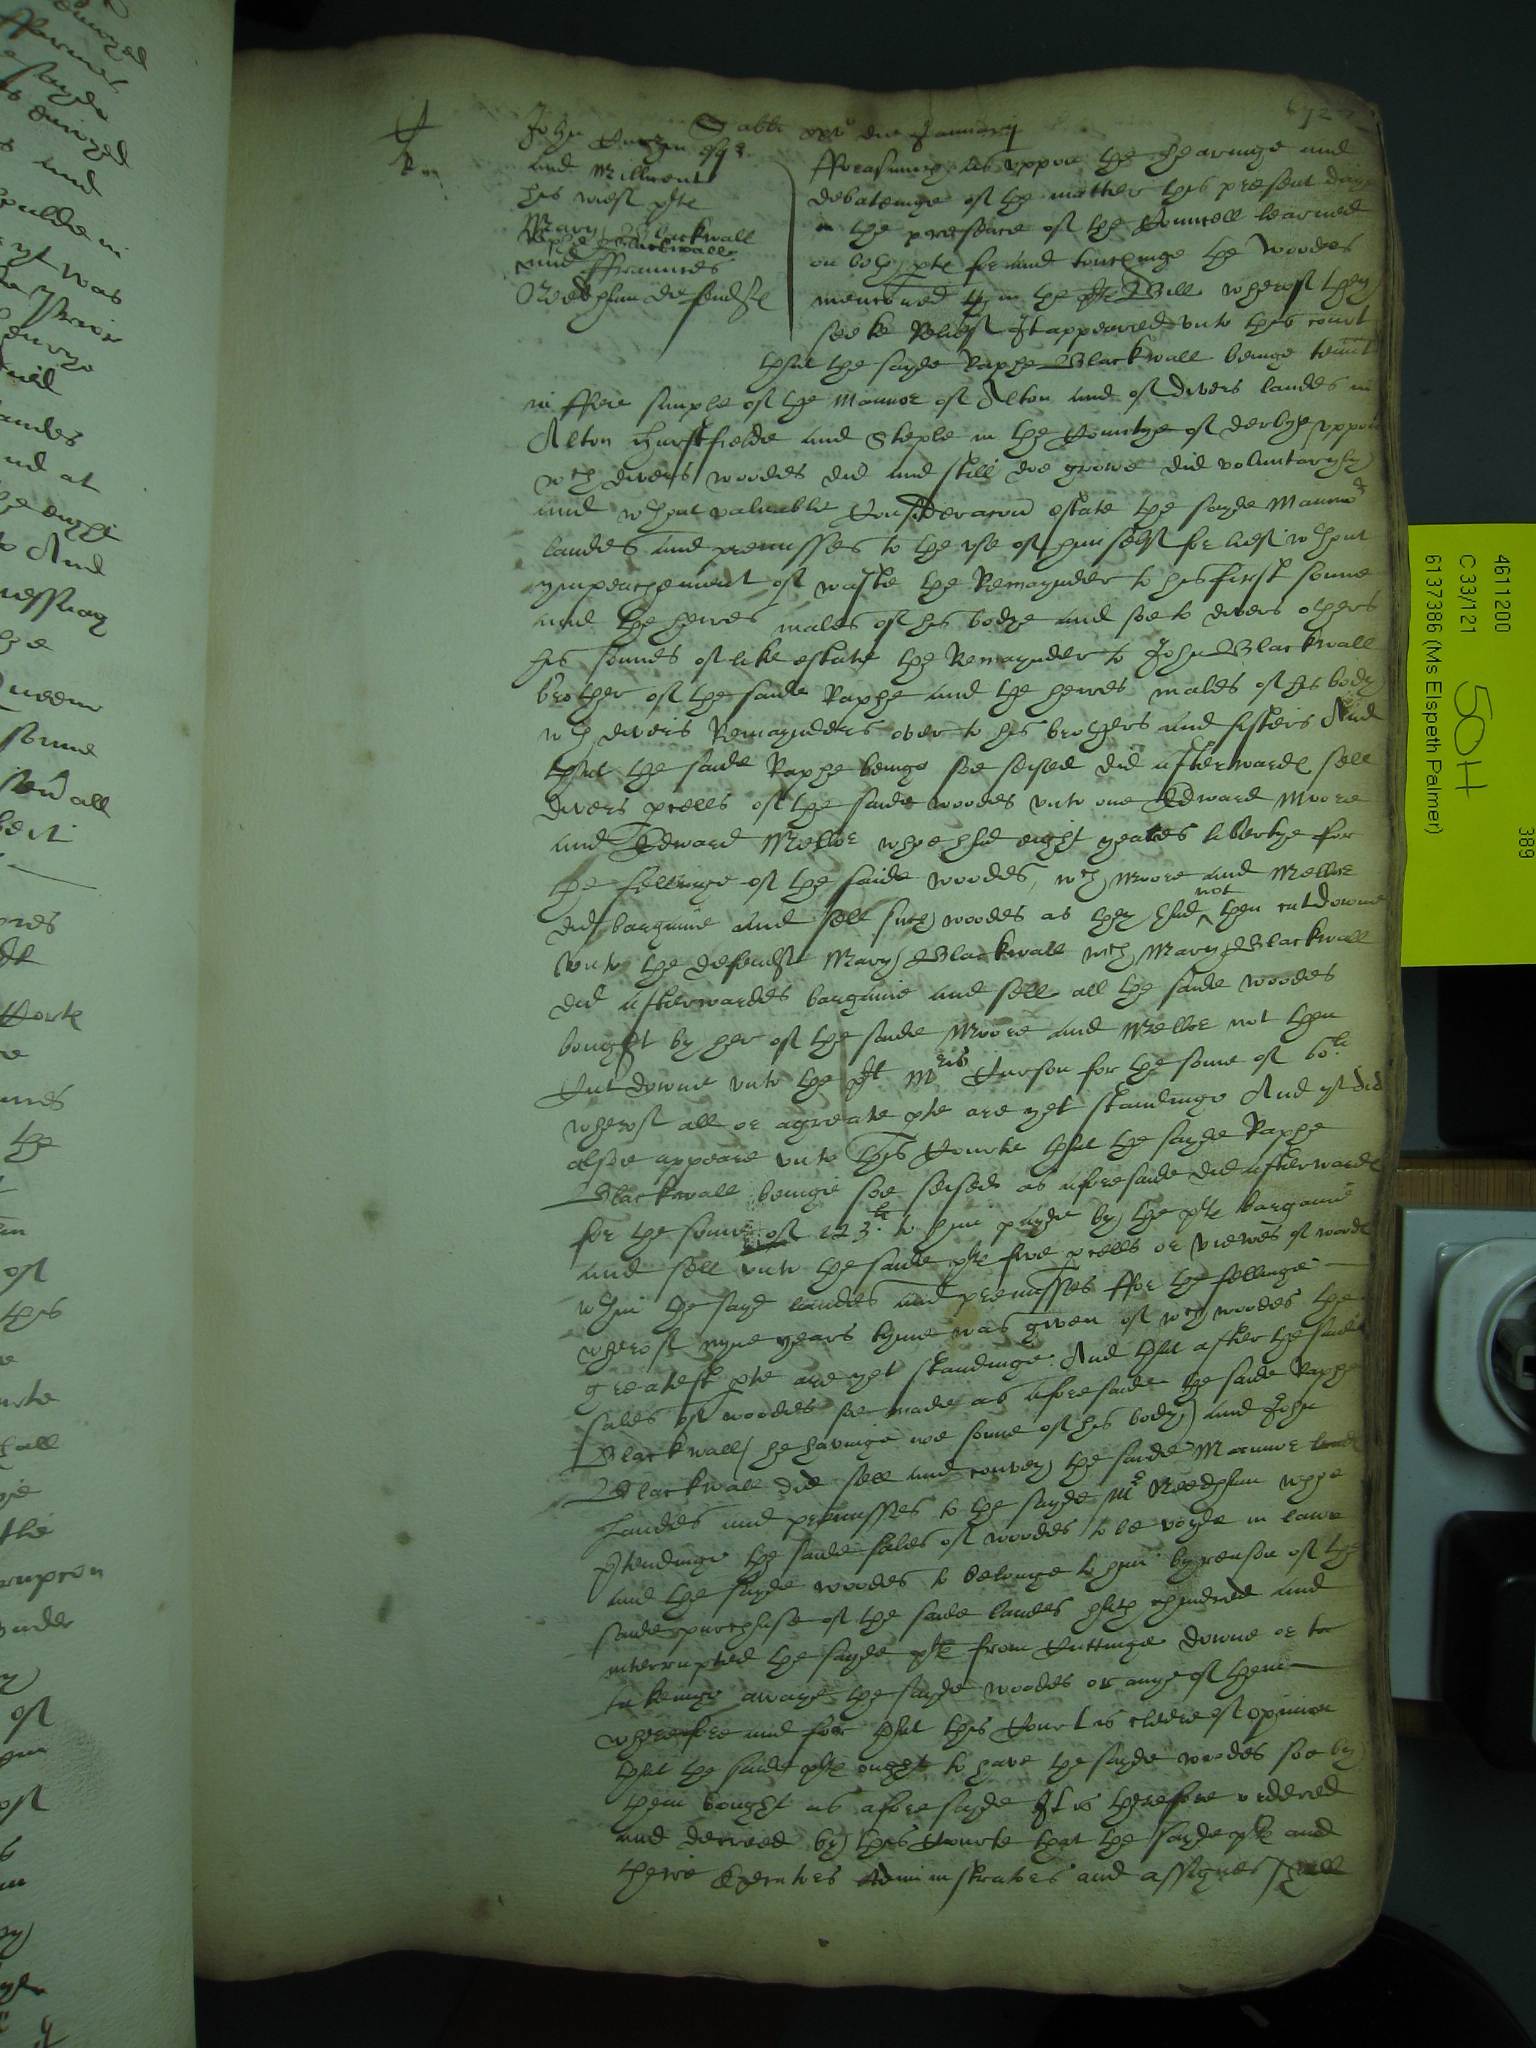 Sabti xxvi die January
John Curzon esq
and Millicent
his wief plts
Mary Blackwall
Raphe Blackwall
and ffraunces
Needham defendts
fforasmuch as uppon the hearinge and
debatinge of the matter this present daye
in the presence of the Councell learned
on both ptes for and touchinge the woodes
menconed in the plts Bill wherof they
seeke Relief It appeared unto this court
that the sayde Raphe Blackwall beinge tennt
in ffee simple of the Mannor of Alton and of divers landes in
Alton Hurstfielde and Steple in the Countye of derbye uppon
wch divers woodes did and still doe growe did voluntaryly
and wthout valuable Consideracon estate the sayde Mannor
landes and premisses to the use of himself for lief wthout
ympeachement of waste the Remaynder to his first sonne
and the heires males of his bodye and soe to divers others
his sonnes of like estate the Remaynder to John Blackwall
brother of the saide Raphe and the heires males of his body
wth divers Remaynders over to his brothers and sisters And
that the saide Raphe beinge soe seised did afterwardes sell
divers pcells of the saide woodes unto one Edward Moore
and Edward Mellor whoe had eight yeares libertye for
the fellinge of the saide woodes, wch Moore and Mellor
did bargaine and sell such woodes as they had not then cut downe
unto the defendt Mary Blackwall wch Mary Blackwall
did afterwardes bargaine and sell all the saide woodes
bought by her of the saide Moore and Mellor not then
Cut downe unto the plt Mris Curson for the some of 60li
wherof all or agreate pte are yet standinge And yt did
alsoe appeare unto this Courte that the sayde Raphe
Blackwall beinge soe seised as aforesaide did afterwardes
for the some of 123li to him payde by the plts bargaine
and sell unto the saide plts five pcells or viewes of woode
wthin the sayd landes and premisses ffor the fellinge
wherof nyne years tyme was given of wch woodes the
greatest pte are yet standinge And that after the saide
sales of woodes soe made as aforesaide the saide Raphe
Blackwall (he havinge noe sonne of his body) and John
Blackwall did sell and convey the saide Mannor
Landes and premisses to the sayde Mr Needham whoe
ptendinge the saide sales of woodes to be voyde in lawe
and the sayde woodes to belonge to him by reason of the
saide purchase of the saide landes hath hindred and
interrupted the sayde plts from Cuttinge downe or
takeinge awaye the sayde woodes or anye of them
wherefore and for that this Court is cleere of opinion
that the saide plts ought to have the sayde woodes soe by
them bought as aforesayde It is therefore ordered
and decreed by this Courte that the sayde plts and
theire Executors Administrators and assignes shall
4611200
C 33/121
6137386 (Ms Elspeth Palmer)
50H
389